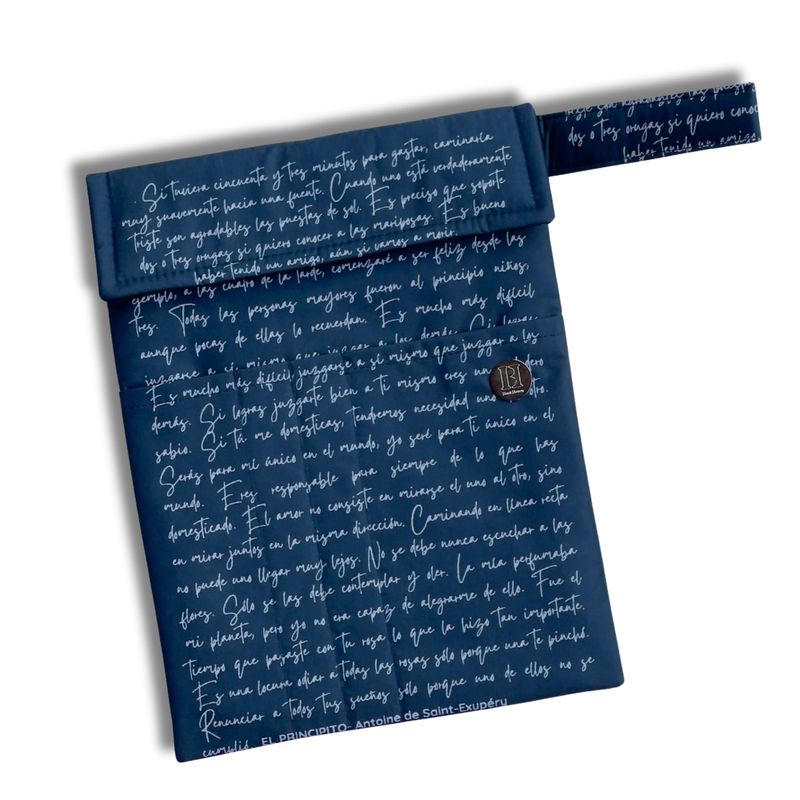 . Si tuviera cincuenta y tres minutos para gastar, caminaría
muy suavemente hacia una fuente. Cuando uno está verdaderamente
triste son agradables las puestas de sol. Es preciso que soporte
dos o tres orugas si quiero conocer a las mariposas. Es bueno
haber tenido un amigo, aún si vamos a morir.
ejemplo, a las cuatro de la tarde, comenzaré a ser feliz desde las
tres. Todas las personas mayores fueron al principio niños,
aunque pocas de ellas lo recuerdan. Es mucho más difícil
juzgarse a sí mismo que juzgar a los demás. Si logras
Es mucho más difícil juzgarse a sí mismo que juzgar a los
demás. Si logras juzgarte bien a ti mismo eres un
sabio. Si tú me domesticas, tendremos necesidad uno otro.
Serás para mí único en el mundo, yo seré para ti único en el
mundo. Eres responsable para siempre de lo que has
domesticado. El amor no consiste en mirarse el uno al otro, sino
en mirar juntos en la misma dirección. Caminando en línea recta
no puede uno llegar muy lejos. No se debe nunca escuchar a las
flores. Sólo se las debe contemplar y oler. La mía perfumaba
mi planeta, pero yo no era capaz de alegrarme de ello. Fue el
tiempo que pasaste con tu rosa lo que la hizo tan importante.
Es una locura odiar a todas las rosas sólo porque una te pinchó.
Renunciar a todos tus sueños sólo porque uno de ellos no se
cumplió. EL PRINCIPITO- Antoine de Saint-Exupéry
BH
triste son agradables las puestas
dos o tres orugas si quiero conoc
haber tenido un amigo